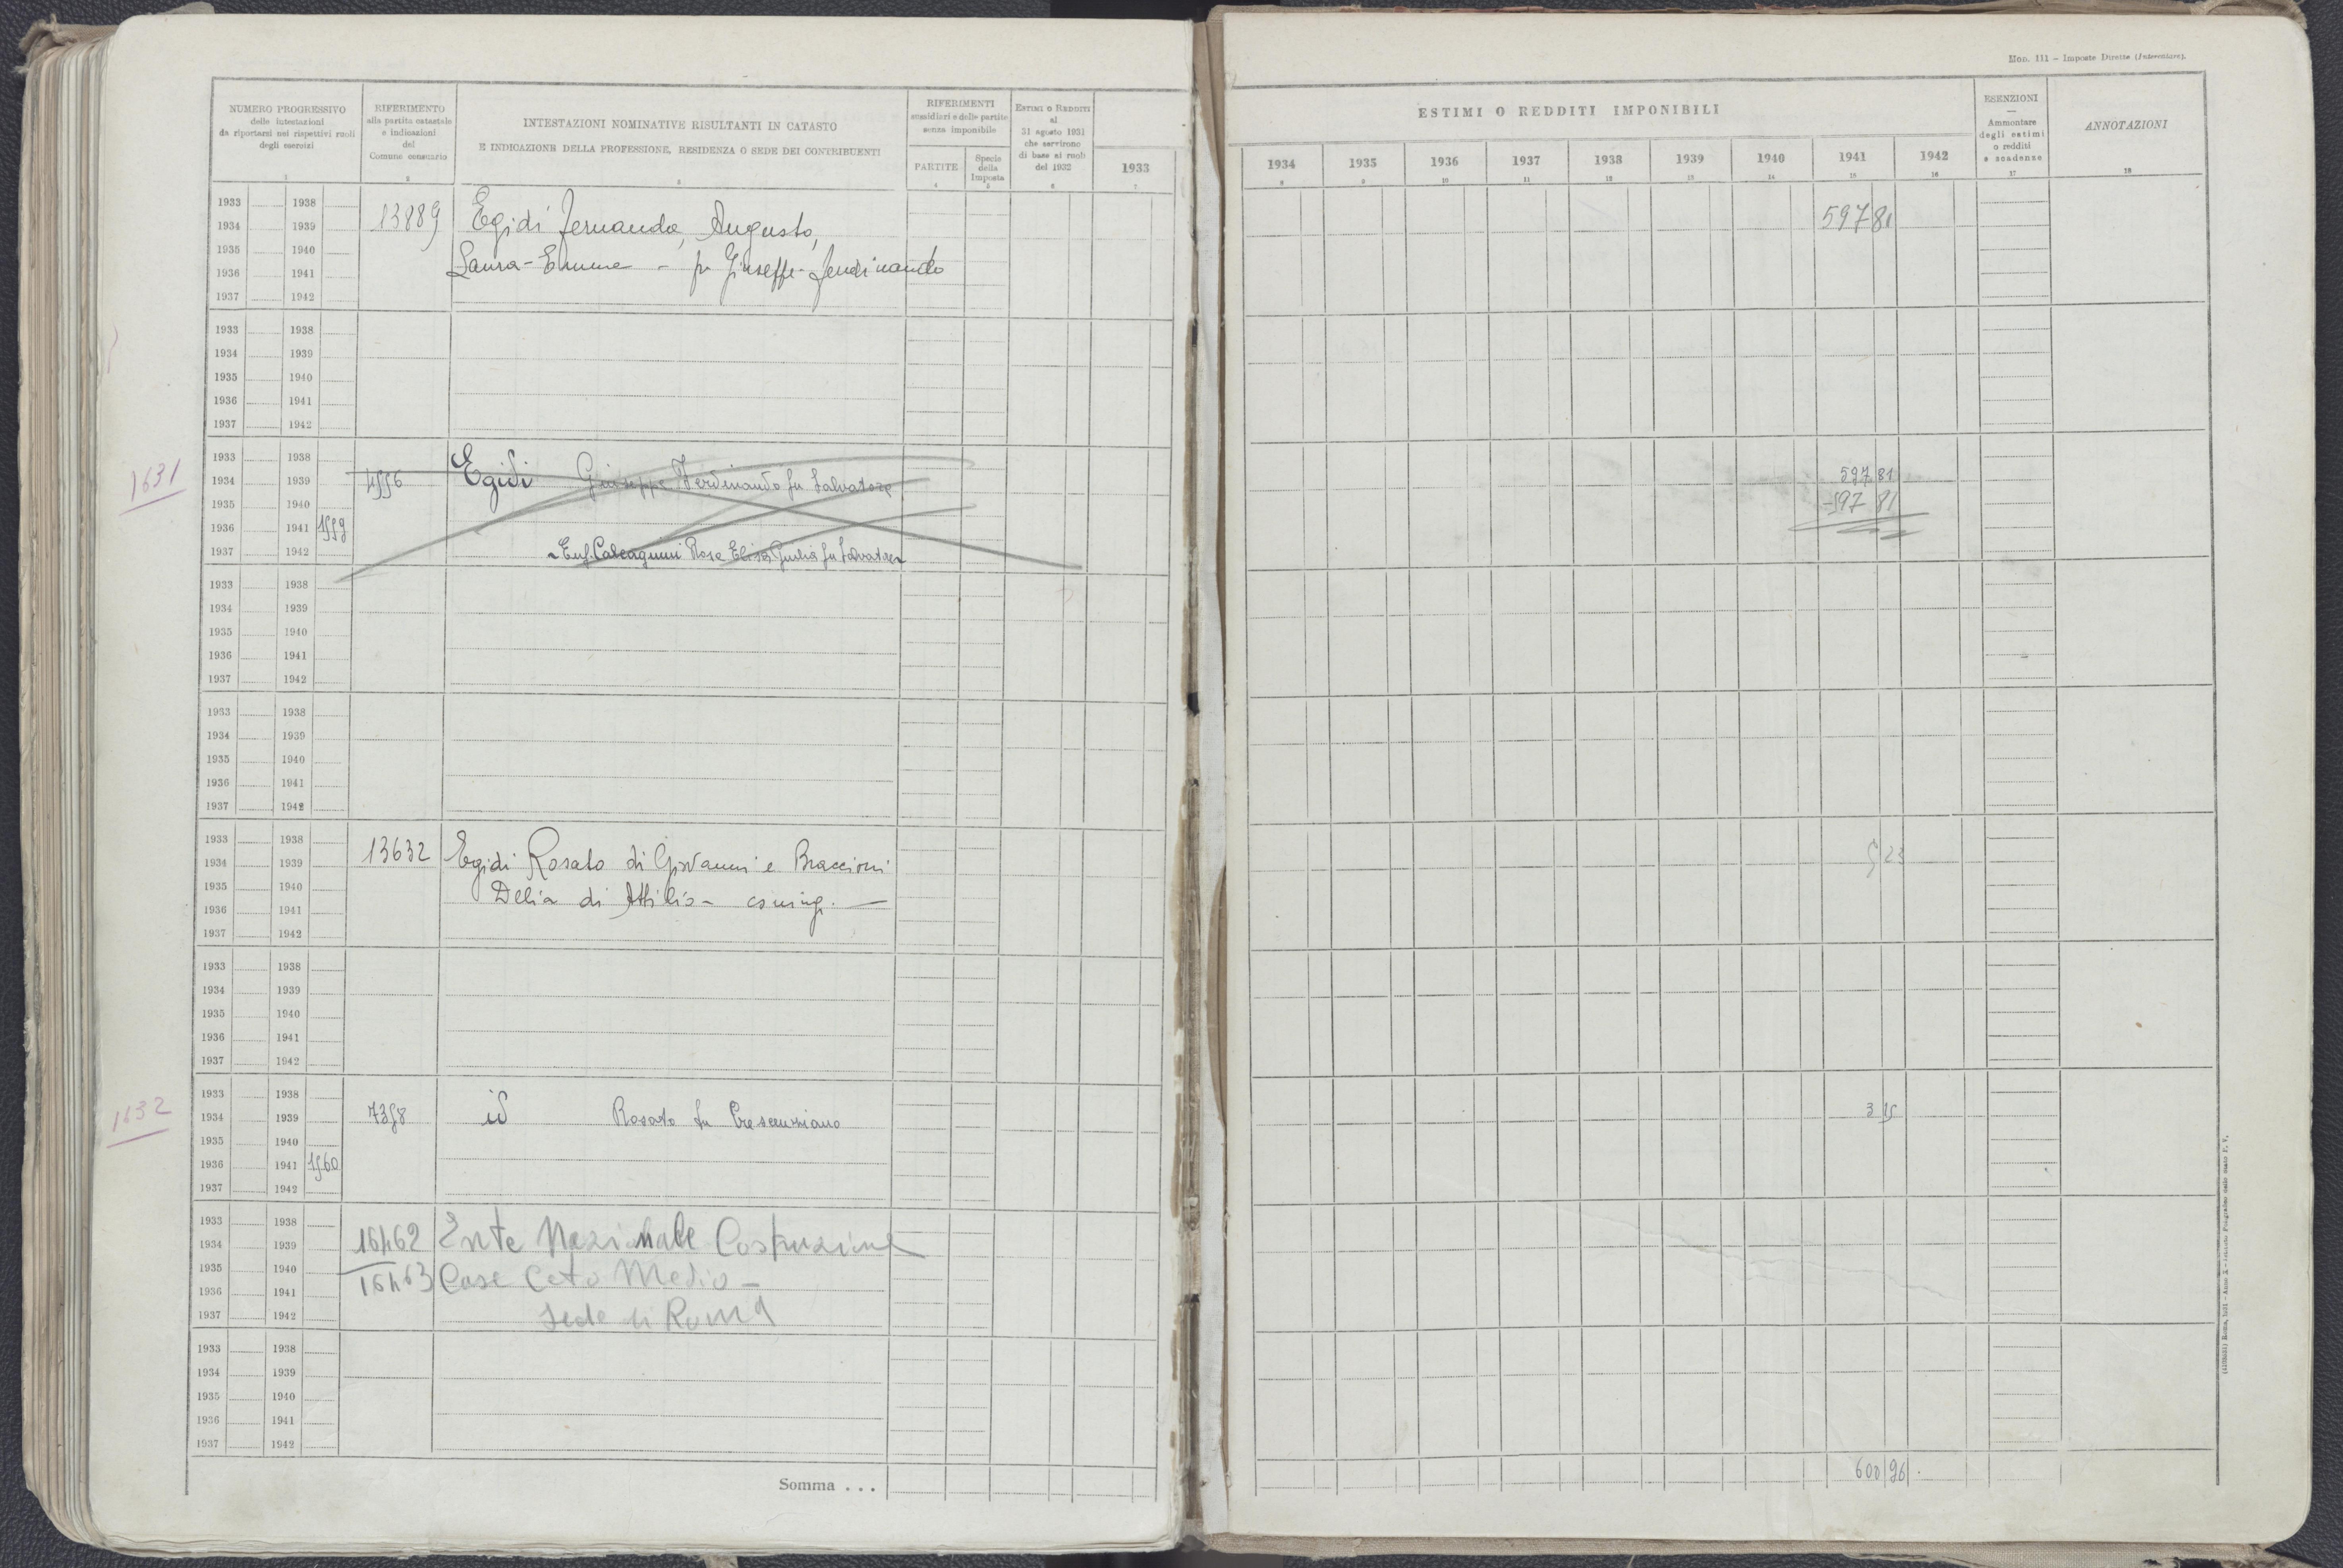 Mod. 111 – Imposte Dirette (Intercalare).
NUMERO PROGRESSIVO
delle intestazioni
da riportarsi nei rispettivi ruoli
degli esercizi
1
RIFERIMENTO
alla partita catastale
e indicazioni
del
Comune censuario
2
INTESTAZIONI NOMINATIVE RISULTANTI IN CATASTO
E INDICAZIONE DELLA PROFESSIONE, RESIDENZA O SEDE DEI CONTRIBUENTI
3
RIFERIMENTI
sussidiari e delle partite
senza imponibile
PARTITE
4
Specie
della
Imposta
5
ESTIMI O REDDITI
al
31 agosto 1931
che servirono
di base ai ruoli
del 1932
6
1933
7
ESTIMI O REDDITI IMPONIBILI
1934 1935 1936 1937 1938 1939 1940 1941 1942
8 9 10 11 12 13 14 15 16
ESENZIONI
—
Ammontare
degli estimi
o redditi
e scadenze
17
ANNOTAZIONI
18
1933 1938
1934 1939 13889 Egidi Fernanda, Augusto, 597 81
1935 1940
1936 1941 Laura-Emma - fu Giuseppe-Ferdinando
1937 1942
1933 1938
1934 1939
1935 1940
1936 1941
1937 1942
1631
1933 1938
1934 1939 4556 Egidi Giuseppe Ferdinando fu Salvatore 597 81
1935 1940 -597 81
1936 1941 1559
1937 1942 Calcagnini Rosa Elisa Giulia fu Salvatore
1933 1938
1934 1939
1935 1940
1936 1941
1937 1942
1933 1938
1934 1939
1935 1940
1936 1941
1937 1942
1933 1938
1934 1939 13632 Egidi Rosato di Giovanni e Braccioni 23
1935 1940
1936 1941 Delia di Attilio - coniug. —
1937 1942
1933 1938
1934 1939
1935 1940
1936 1941
1937 1942
1632
1933 1938
1934 1939 7358 id Rosato fu Crescenziano 3 15
1935 1940
1936 1941 1560
1937 1942
1933 1938
1934 1939 16462 Ente Nazionale Costruzione
1935 1940 16463 Case Ceto Medio -
1936 1941
1937 1942 Sede di Roma
1933 1938
1934 1939
1935 1940
1936 1941
1937 1942
Somma . . . 600 96